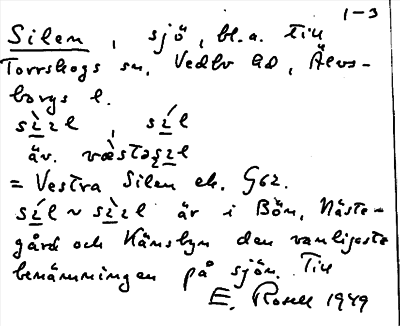 1-3
Silen, sjö, bl.a. till
Torrskogs sn, Vedbo hd, Älvs-
borgs l.
sìzl, síl
äv. væstaszl
= Vestra Silen ek. G62.
síl ~ sìzl är i Bön, Näste-
gård och Känsbyn den vanligaste
benämningen på sjön. Till
E. Rosell 1949